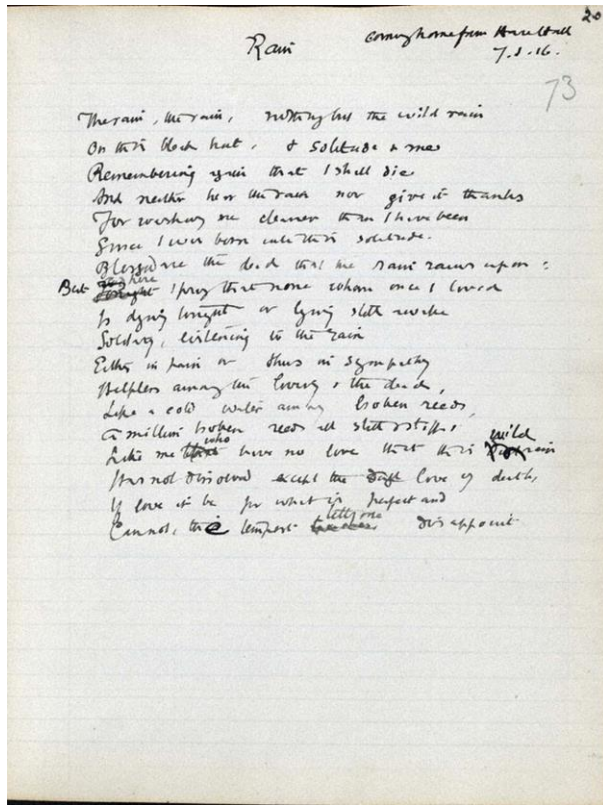 20
Rain
Coming home from Hare Hall
7.1.16.
73
The rain, the rain, nothing but the wild rain
On this bleak hut, & solitude & me
Remembering again that I shall die
And neither hear the rain nor give it thanks
For washing me cleaner than I have been
Since I was born into this solitude.
Blessed are the dead that the rain rains upon:
here
But I pray that none whom once I loved
Is dying tonight or lying still awake
Solitary, listening to the rain
Either in pain or thus in sympathy
Helpless among the living & the dead,
Like a cold water among broken reeds,
A million broken reeds all still & stiff,
who wild
Like me have no love that this rain
Has not dissolved except the love of death,
If love it be for what is perfect and
tells me
Cannot, the tempest disappoint